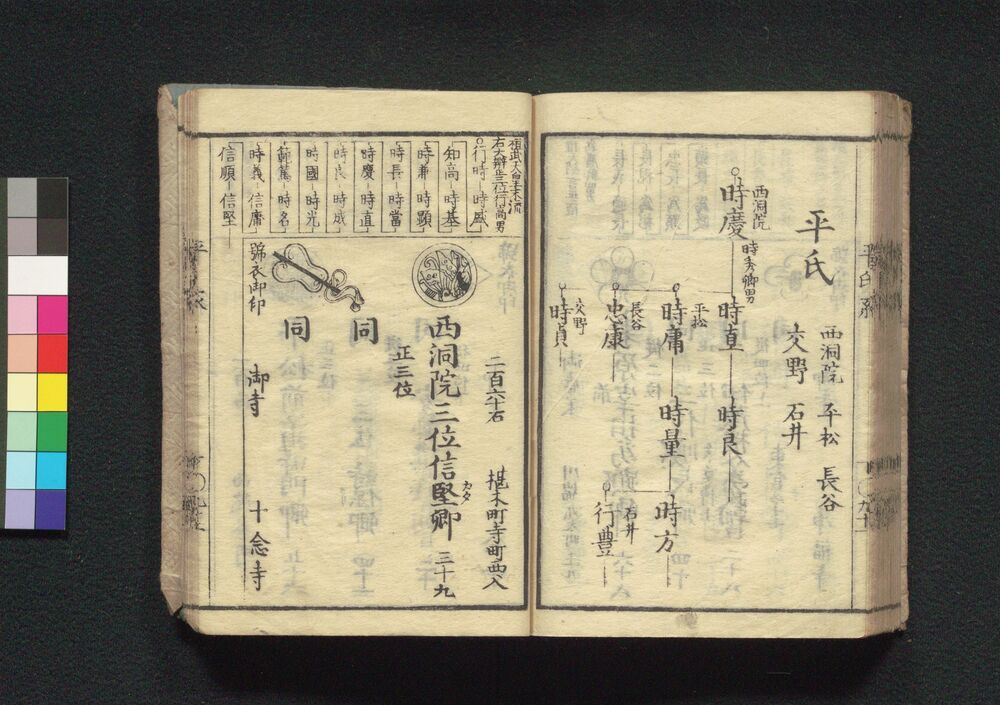 平氏
西洞院 平松 長谷
交野 石井
西洞院
時慶
時秀卿男
時直
時良
平松
時庸
時量
時方
石井
行豊
長谷
忠康
交野
時貞
桓武天皇末流
右大辨正二位行高男
行時 時盛
知高 時基
時兼 時顕
時長 時當
時慶 時直
時良 時成
時國 時光
範篤 時名
時義 信庸
信順 信堅
二百六十石
椹木町寺町西入
西洞院三位信堅卿
カタ
三十九
正三位
同
同
號衣御印
御寺
十念寺